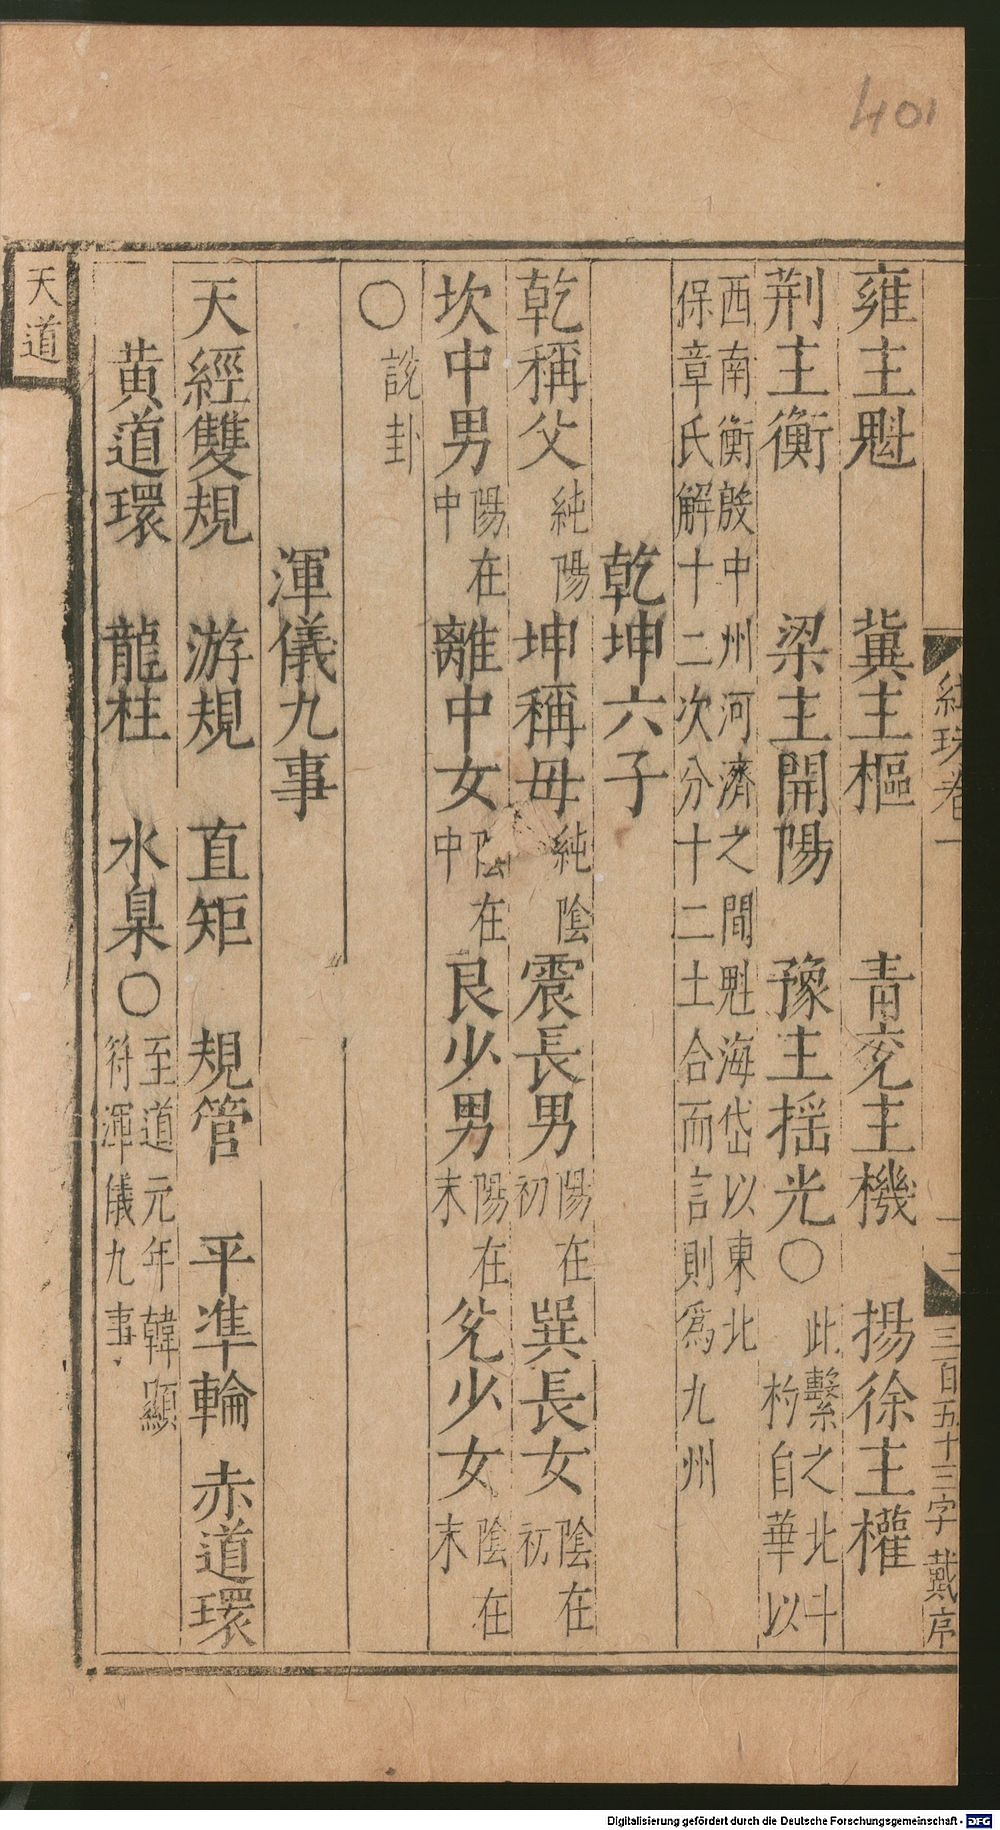 401
雍主魁　冀主樞　青兗主機　揚徐主權
荆主衡　梁主開陽　豫主揺光〇此繫之北斗
杓自華以
西南衡殷中州河濟之間魁海岱以東北
保章氏解十二次分十二土合而言則爲九州
乾坤六子
乾稱父純陽坤稱母純陰震長男陽在初巽長女陰在初
坎中男陽在中離中女陰在中艮少男陽在末兊少女陰在末
〇說卦
渾儀九事
天經雙規　游規　直矩　規管　平準輪　赤道環
黄道環　龍柱　水臬〇至道元年韓顯
符渾儀九事
天道
珠卷一
三百五十三字　戴序
Digitalisierung gefördert durch die Deutsche Forschungsgemeinschaft - DFG